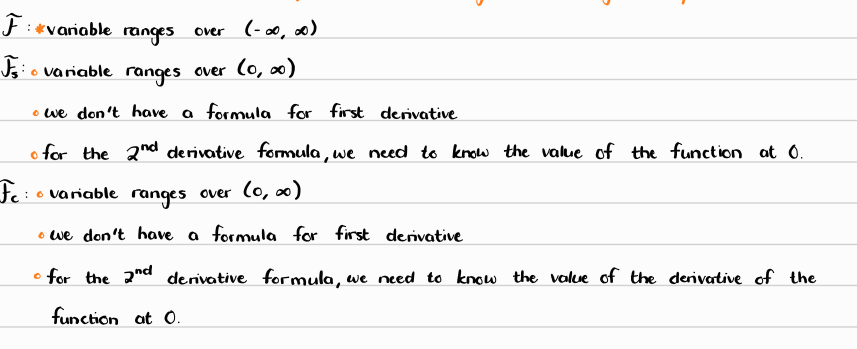 F̃ : *variable ranges over (-∞, ∞)
F̃s : ∘ variable ranges over (0, ∞)
∘ we don't have a formula for first derivative
∘ for the 2nd derivative formula, we need to know the value of the function at 0.
F̃c : ∘ variable ranges over (0, ∞)
∘ we don't have a formula for first derivative
∘ for the 2nd derivative formula, we need to know the value of the derivative of the
function at 0.